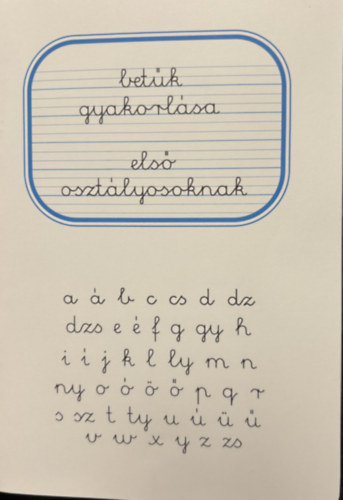 betűk
gyakorlása
első
osztályosoknak
a á b c cs d dz
dzs e é f g gy h
i í j k l ly m n
ny o ó ö ő p q r
s sz t ty u ú ü ű
v w x y z zs